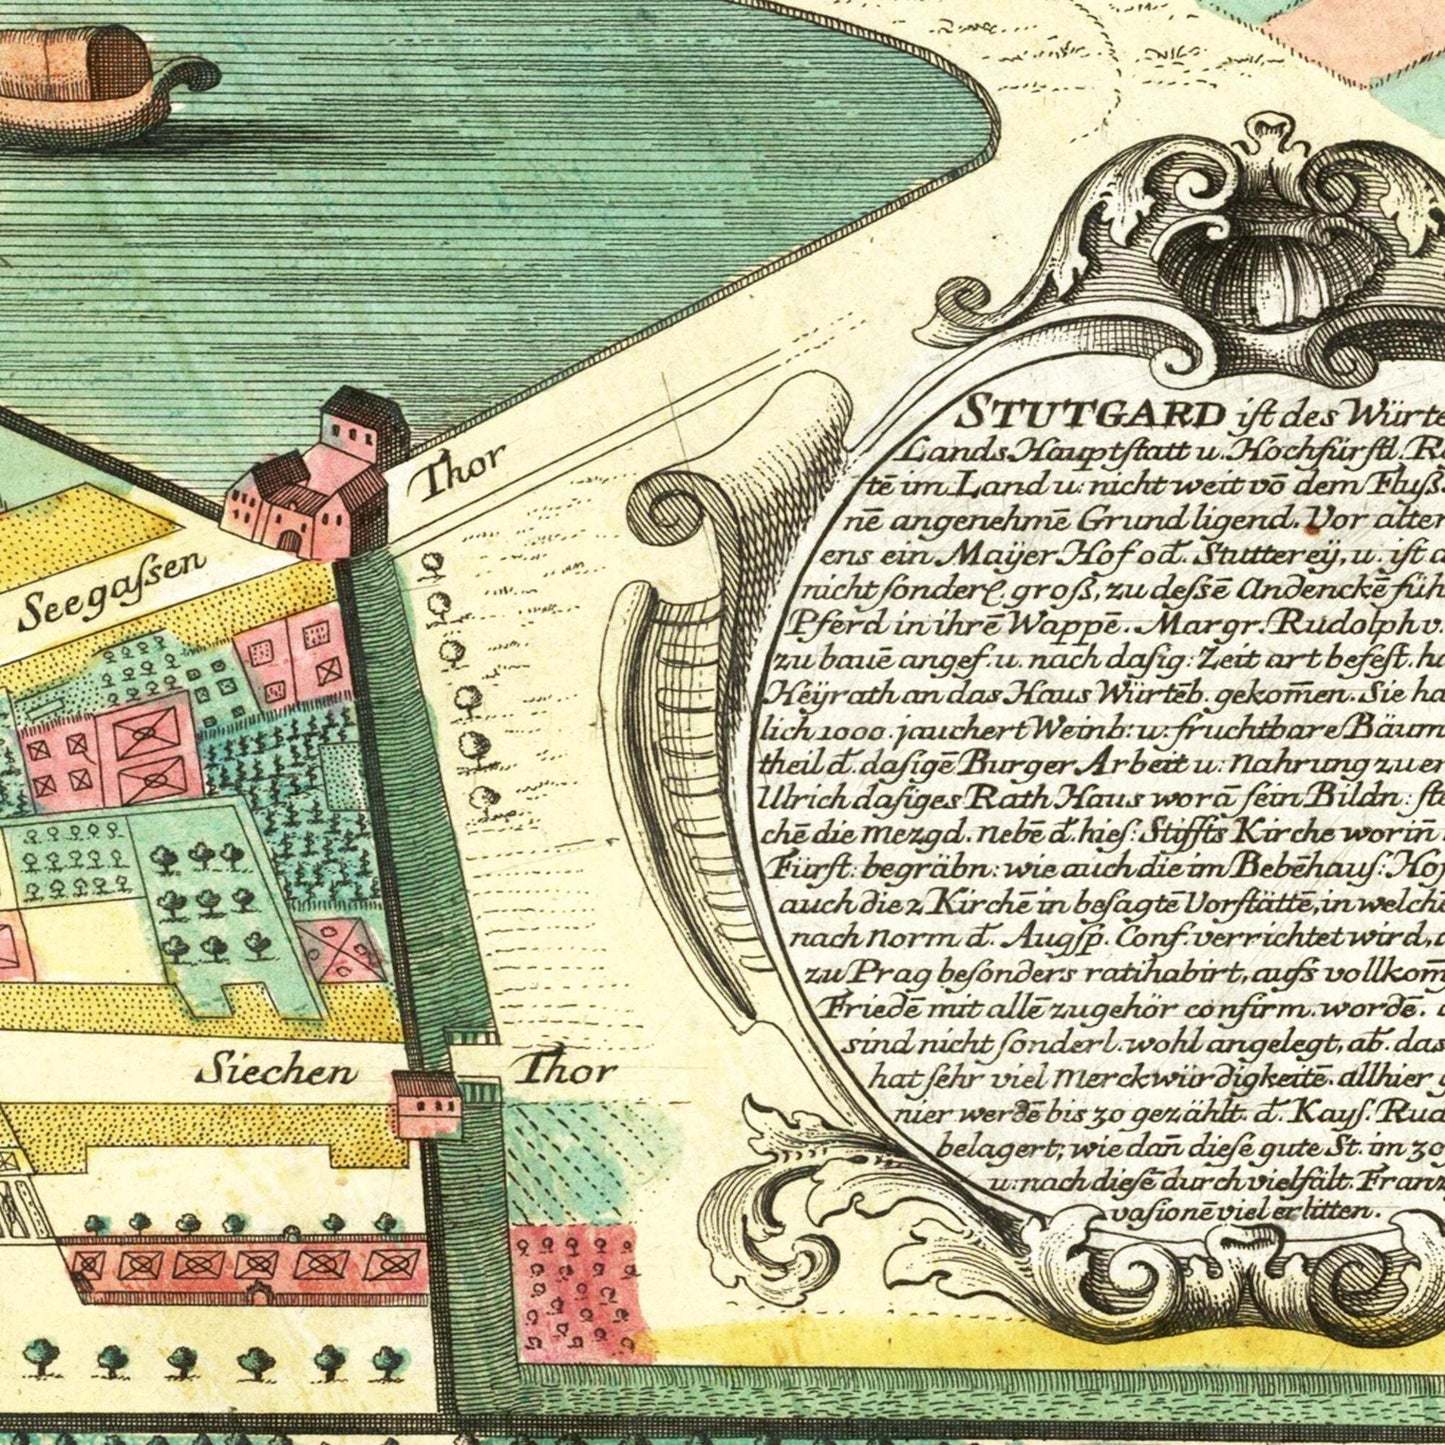 Thor
Seegaſsen
Siechen
Thor
STUTGARD iſt des Würte
Lands Hauptſtatt u. Hochfürſtl. Re
tē im Land u: nicht weit vō dem Fluß
nē angenehmē Grund ligend. Vor alter
ens ein Maÿer Hof od. Stuttereÿ, u. iſt d
nicht ſonderl. groß, zu deſsē Andenckē füh
Pferd in ihrē Wappē. Margr. Rudolph v.
zu bauē angef. u. nach daſig: Zeit art befeſt. ha
Heÿrath an das Haus Würtēb. gekom̄en. Sie ha
lich 1000. jauchert Weinb: u: fruchtbare Bäum
theil d. daſigē Burger Arbeit u: Nahrung zu er
Ulrich daſiges Rath Haus worā ſein Bildn: ſte
chē die Mezgd. Nebē d. hieſ: Stiffts Kirche worin̄
Fürſt: begräbn: wie auch die im Bebēhauſ: Hof
auch die 2 Kirchē in beſagtē Vorſtättē, in welchē
nach Norm d. Augſp. Conf. verrichtet wird,
zu Prag beſonders ratihabirt, aufs vollkom̄
Friedē mit allē zugehör confirm. wordē.
sind nicht ſonderl. wohl angelegt, ab. das
hat ſehr viel Merckwürdigkeitē. allhier
nier werdē bis 30 gezählt. d. Kayſ. Rud
belagert; wie dan̄ dieſe gute St. im 30
u: nach dieſē durch vielfält. Franz
vaſionē viel erlitten.